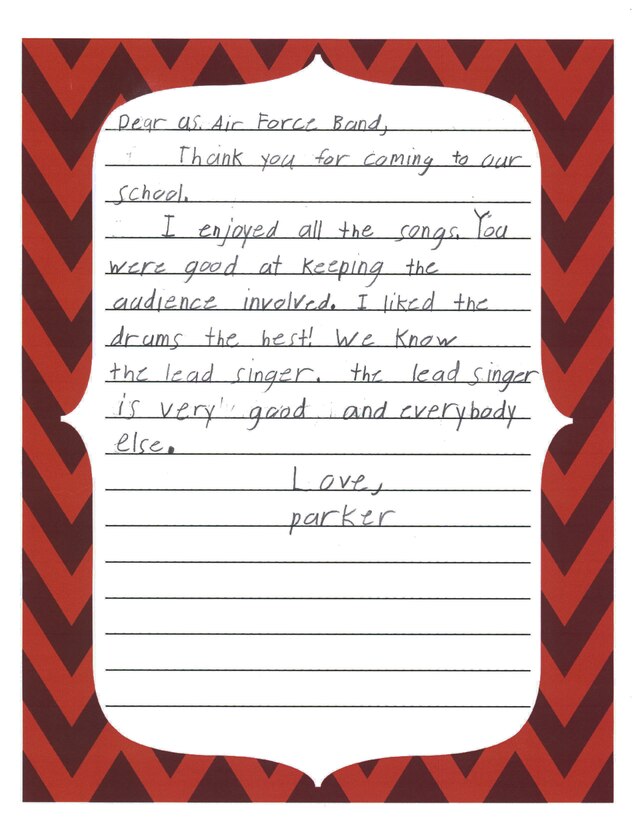 Dear us. Air Force Band,
Thank you for coming to our
school.
I enjoyed all the songs. You
were good at keeping the
audience involved. I liked the
drums the best! We know
the lead singer. the lead singer
is very good and everybody
else.
Love,
parker